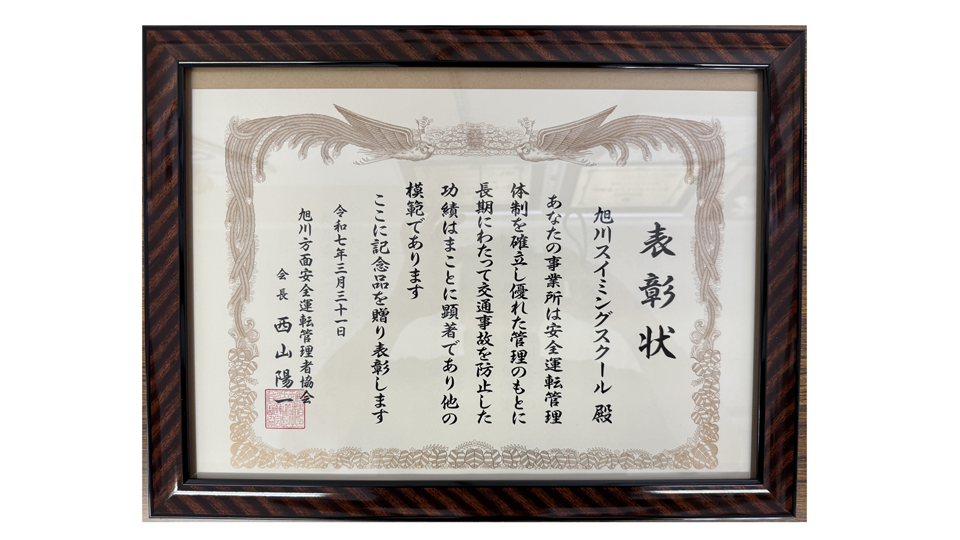 表彰状
旭川スイミングスクール 殿
あなたの事業所は安全運転管理
体制を確立し優れた管理のもとに
長期にわたって交通事故を防止した
功績はまことに顕著であり他の
模範であります
ここに記念品を贈り表彰します
令和七年三月三十一日
旭川方面安全運転管理者協会
会長 西山陽一